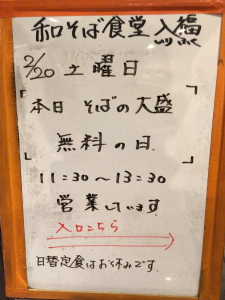 和そば食堂 入福
いりふく
2/20 土曜日
「本日 そばの大盛
無料の日」
11:30〜13:30
営業しています
入口こちら
日替定食はお休みです。